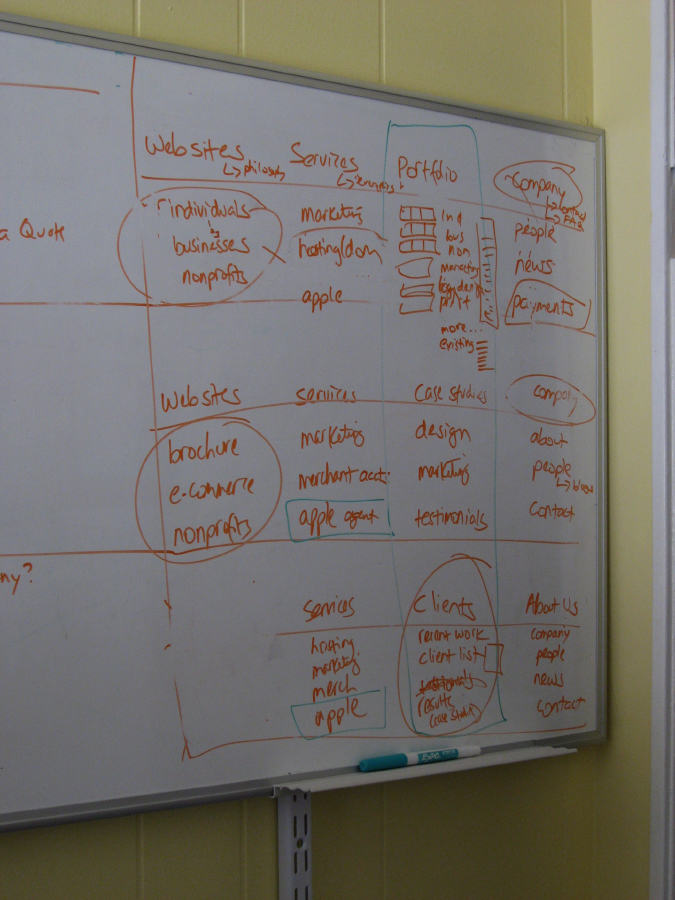 a Quote
ny?
Websites Services Portfolio Company
↳ philosophy ↳ ↳ contact
↳ FAQ
individuals marketing ind people
businesses hosting/dom bus news
nonprofits apple non payments
marketing
print
more...
existing
Websites services case studies company
brochure marketing design about
e-commerce merchant acct. marketing people
nonprofits apple agent testimonials contact
services Clients About Us
hosting recent work company
marketing client list people
merch testimonials news
apple results contact
(case studies)
EXPO